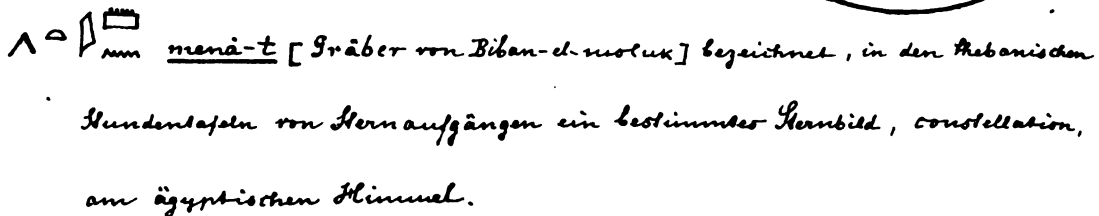 menȧ-t [Gräber von Biban-el-moluk] bezeichnet, in den thebanischen
Stundentafeln von Sternaufgängen ein bestimmtes Sternbild, constellation,
am ägyptischen Himmel.